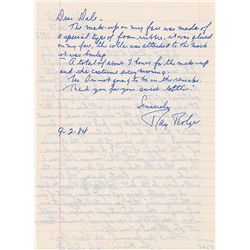 Dear Dale -
The make-up on my face was made of
a special type of foam rubber, it was glued
on my face, the was attached to the mask
it was burlap.
- A total of about 3 hours for the make-up
and the costume every morning.
No I'm not going to be in the remake.
Thank you for your sweet letter
Sincerely
Ray Bolger
9-2-84